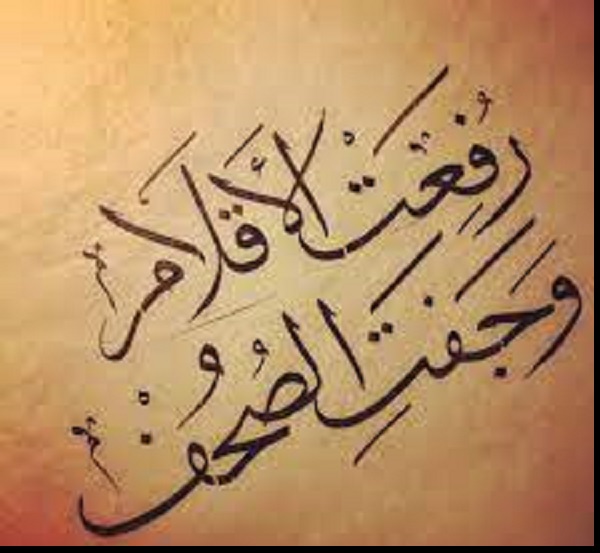 رُفِعَتْ الأَقلَامُ
وَجَفَتِ الصُحُفُ